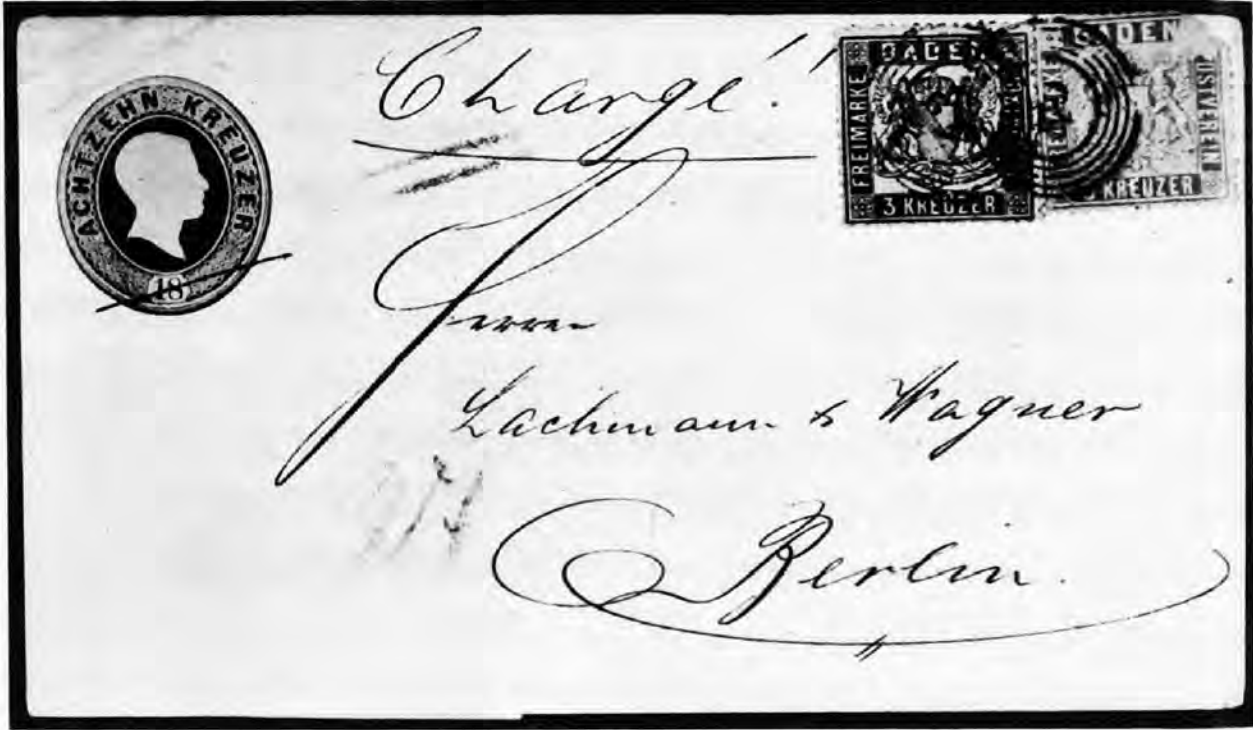 Chargé!
ACHTZEHN KREUZER
18
BADEN
FREIMARKE
3 KREUZER
BADEN
POSTVEREIN
KREUZER
Herren
Lachmann & Wagner
Berlin.